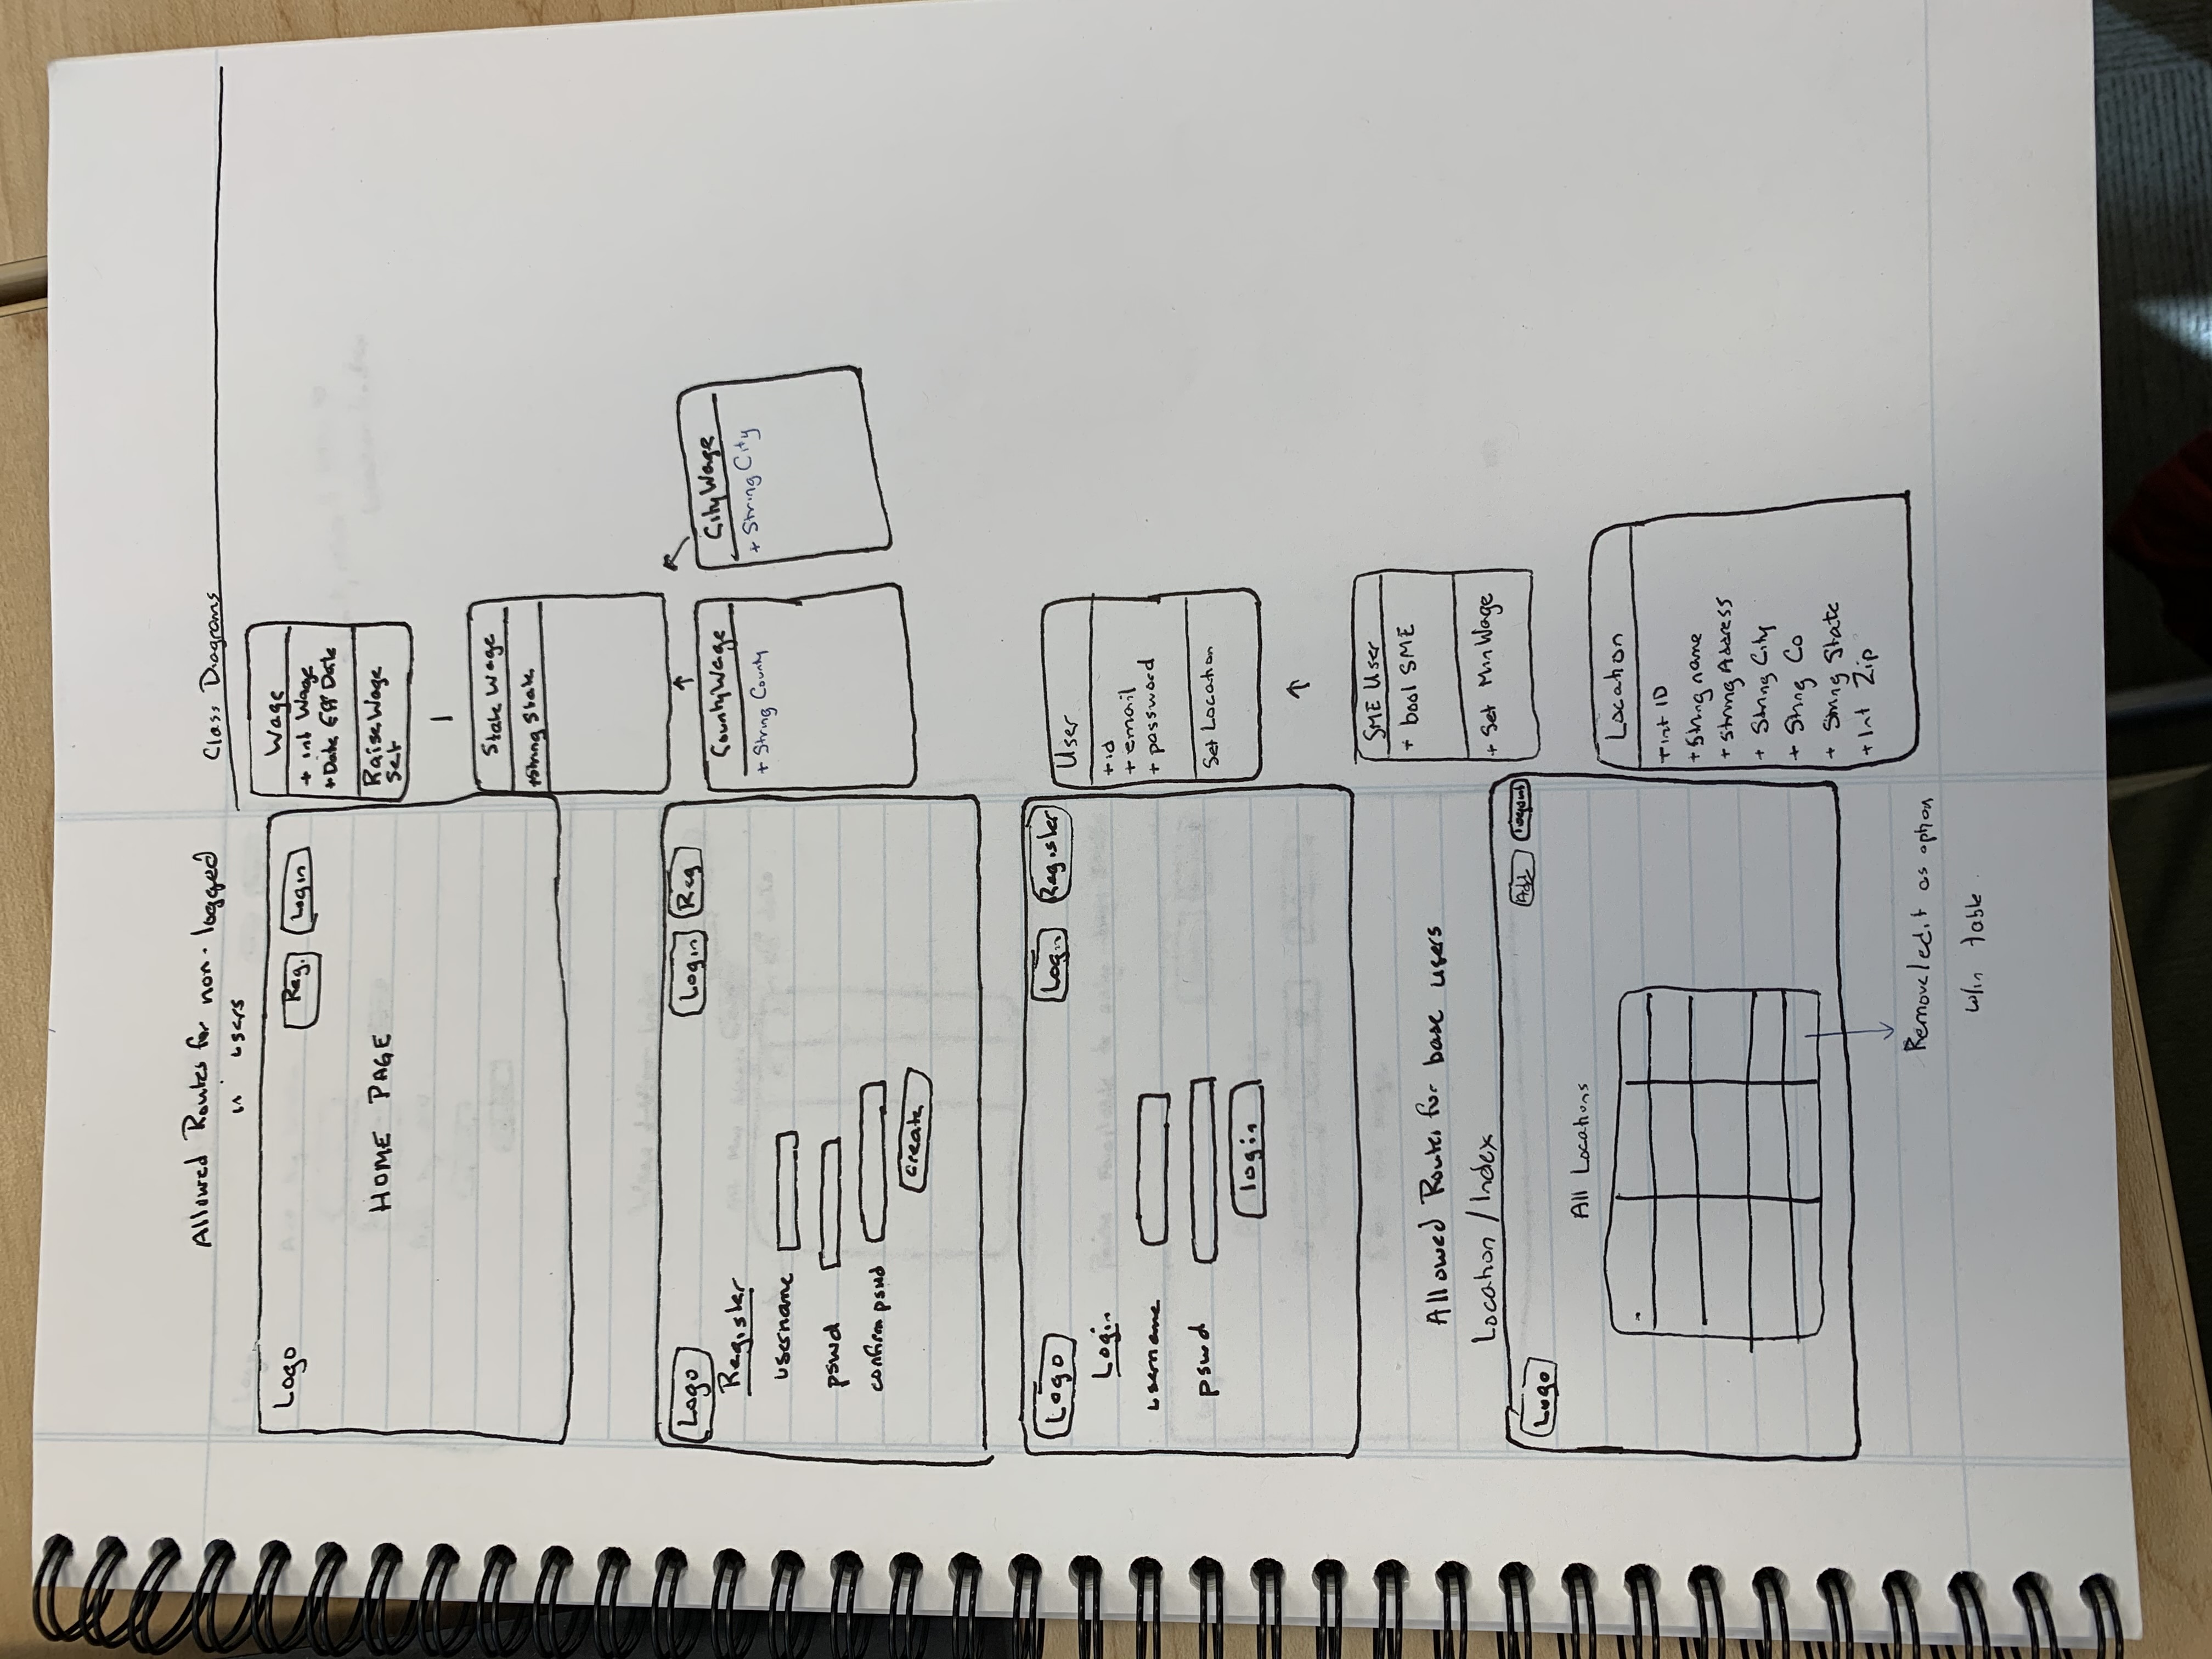 Allowed Routes for non-logged
in users
Logo
Reg.
Login
HOME PAGE
Logo
Login
Reg
Register
username
pswd
confirm pswd
create
Logo
Login
Register
Login
username
pswd
login
Allowed Routes for base users
Location / Index
Logo
Add
logout
All Locations
Remove/edit as option
w/in table
Class Diagrams
Wage
+ int Wage
+ Date Eff Date
RaiseWage
Set
State Wage
+String State
CountyWage
+ String County
CityWage
+ String City
User
+ id
+ email
+ password
Set Location
SME User
+ bool SME
+ Set MinWage
Location
+int ID
+String name
+ String Address
+ String City
+ String Co
+ String State
+ Int Zip